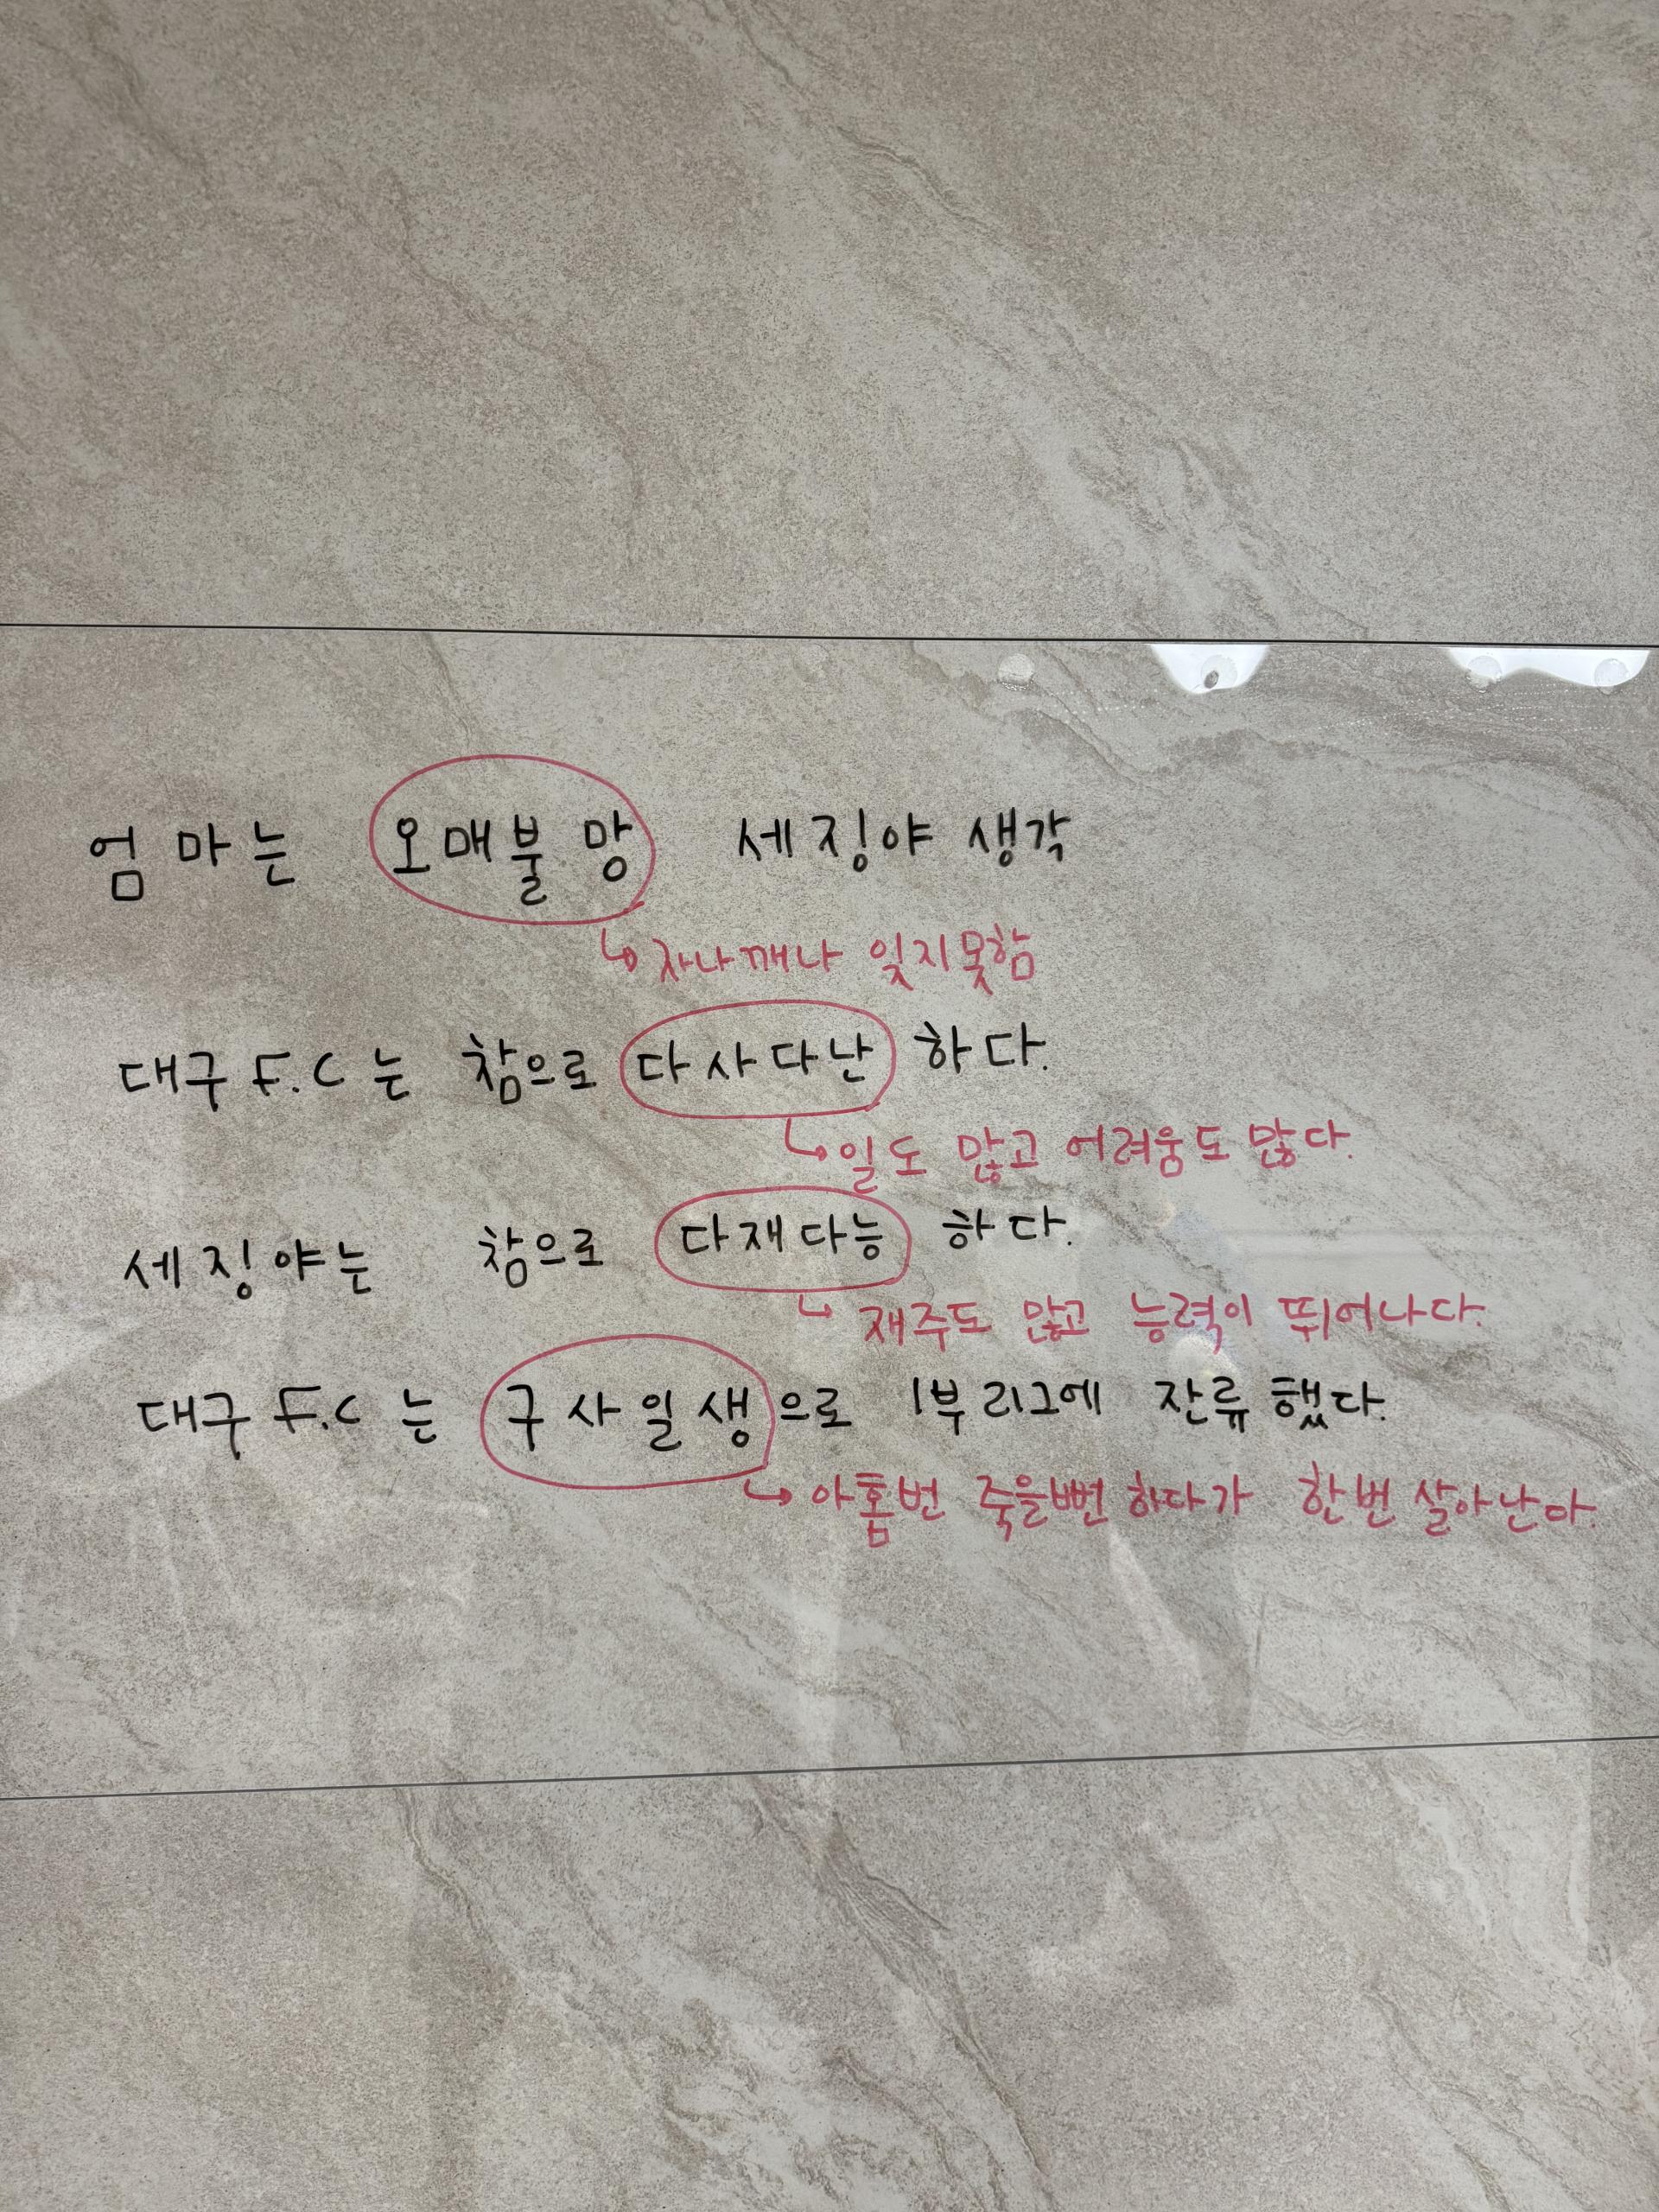 엄마는 오매불망 세징야 생각
자나깨나 잊지못함
대구 F.C는 참으로 다사다난 하다.
일도 많고 어려움도 많다.
세징야는 참으로 다재다능 하다.
재주도 많고 능력이 뛰어나다.
대구 F.C는 구사일생으로 1부리그에 잔류했다.
아홉번 죽을뻔하다가 한번 살아난다.